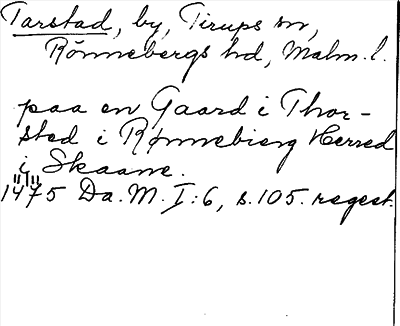 Tarstad, by, Tirups sn,
Rönnebergs hd, Malm. l.
paa en Gaard i Thor-
sted i Rønnebierg Herred
i Skaane.
1475 Da. M. I:6, s. 105. regest.